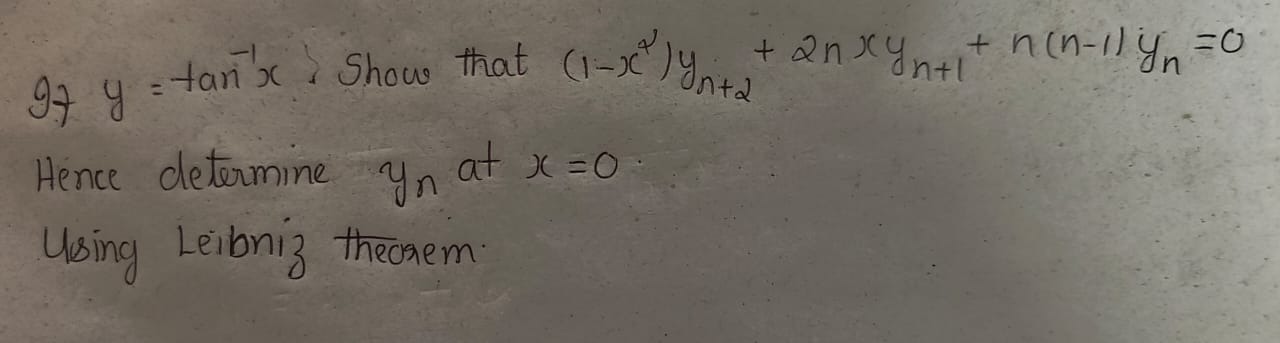 If y = tan⁻¹x ; Show that (1-x²)yₙ₊₂ + 2nxyₙ₊₁ + n(n-1)yₙ = 0
Hence determine yₙ at x = 0.
Using Leibniz theorem.